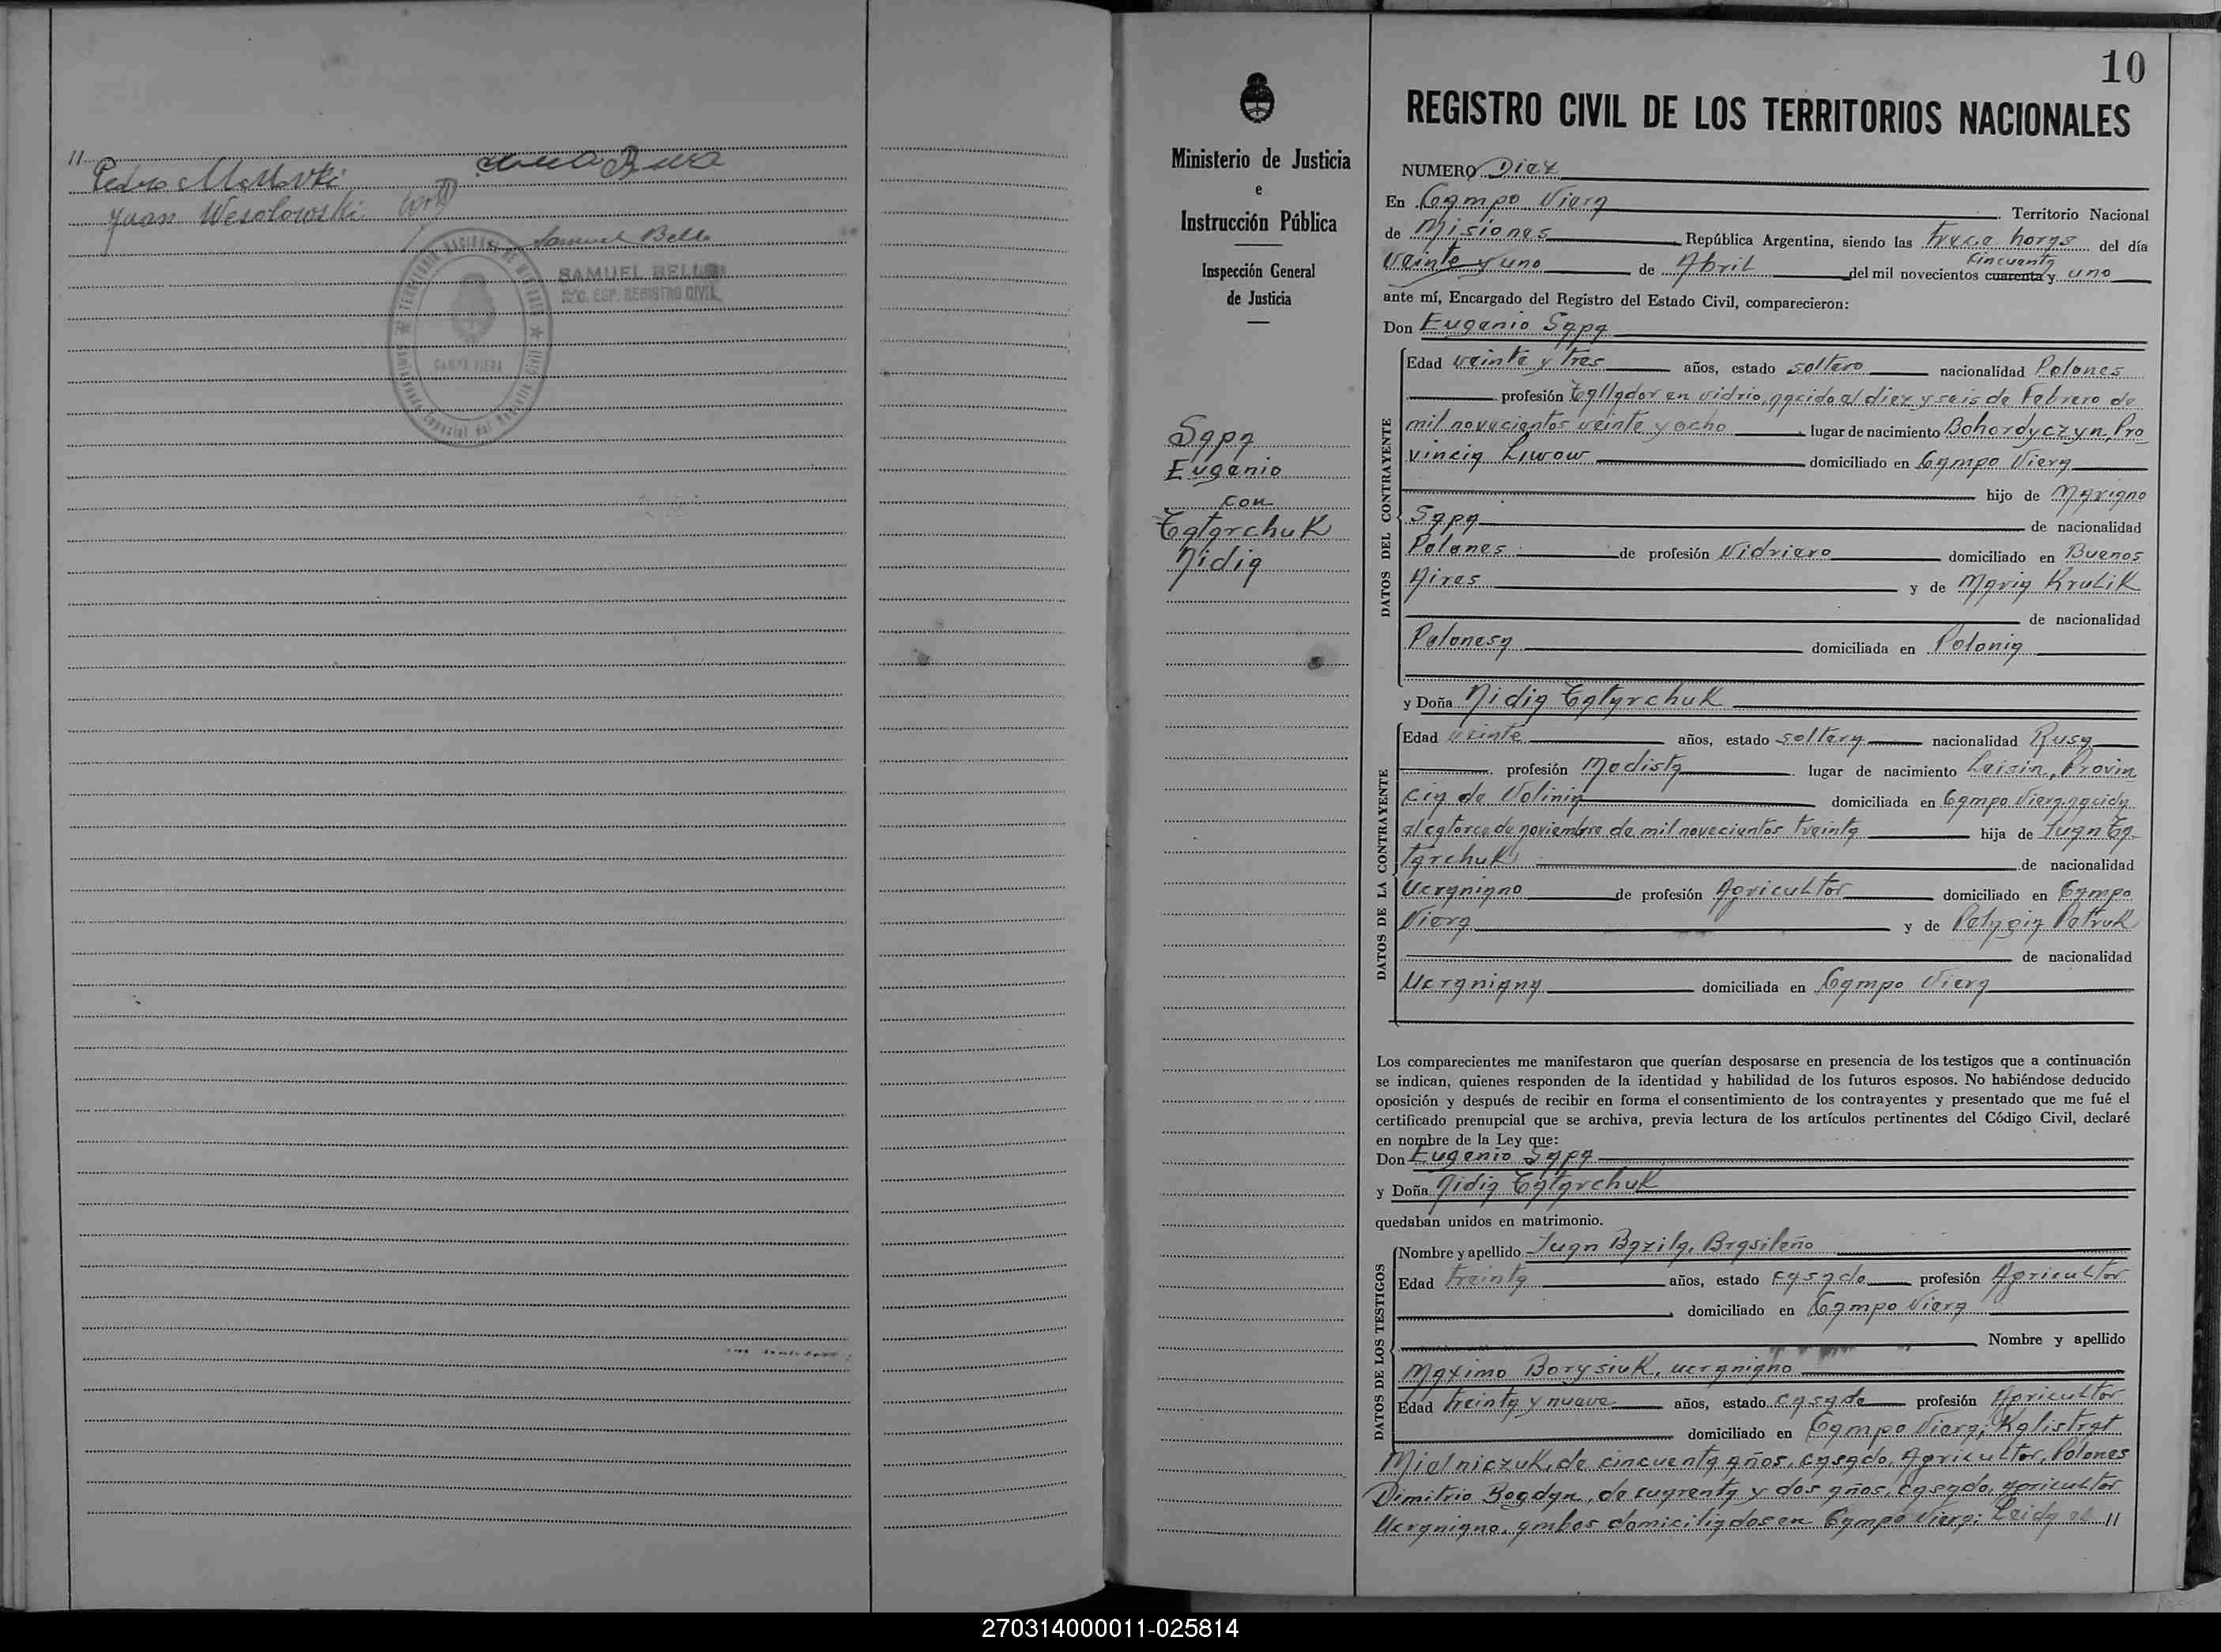 11
Juan Wesolowski
Samuel Bello
SAMUEL BELLO
CAMPO VIERA
10
REGISTRO CIVIL DE LOS TERRITORIOS NACIONALES
Ministerio de Justicia
e
Instrucción Pública
Inspección General
de Justicia
Sapa
Eugenio
con
Tatarchuk
Nidia
NUMERO Diez
En Campo Viera Territorio Nacional
de Misiones República Argentina, siendo las trece horas del día
veinte y uno de Abril del mil novecientos cuarenta cincuenta y uno
ante mí, Encargado del Registro del Estado Civil, comparecieron:
Don Eugenio Sapa
DATOS DEL CONTRAYENTE
Edad veinte y tres años, estado soltero nacionalidad Polones
profesión Tallador en vidrio, nacido el diez y seis de Febrero de
mil novecientos veinte y ocho lugar de nacimiento Bohordyczyn, Pro
vincia Liwow domiciliado en Campo Viera
hijo de Mariano
Sapa de nacionalidad
Polones de profesión Vidriero domiciliado en Buenos
Aires y de Maria Krulik
de nacionalidad
Polonesa domiciliada en Polonia
y Doña Nidia Tatarchuk
DATOS DE LA CONTRAYENTE
Edad veinte años, estado soltera nacionalidad Rusa
profesión Modista lugar de nacimiento Leisin, Provin
cia de Volinia domiciliada en Campo Viera, nacida
el catorce de noviembre de mil novecientos treinta hija de Juan Ta
tarchuk de nacionalidad
Ucraniano de profesión Agricultor domiciliado en Campo
Viera y de Petruk
de nacionalidad
Ucraniana domiciliada en Campo Viera
Los comparecientes me manifestaron que querían desposarse en presencia de los testigos que a continuación
se indican, quienes responden de la identidad y habilidad de los futuros esposos. No habiéndose deducido
oposición y después de recibir en forma el consentimiento de los contrayentes y presentado que me fué el
certificado prenupcial que se archiva, previa lectura de los artículos pertinentes del Código Civil, declaré
en nombre de la Ley que:
Don Eugenio Sapa
y Doña Nidia Tatarchuk
quedaban unidos en matrimonio.
DATOS DE LOS TESTIGOS
Nombre y apellido Juan Bazila, Brasileño
Edad treinta años, estado casado profesión Agricultor
domiciliado en Campo Viera
Nombre y apellido
Maximo Borysiuk, ucraniano
Edad treinta y nueve años, estado casado profesión Agricultor
domiciliado en Campo Viera; Kalistrat
Mielniczuk, de cincuenta años, casado, Agricultor, Polones
Dimitrio Bogdan, de cuarenta y dos años, casado, agricultor
Ucraniano, ambos domiciliados en Campo Viera; Leida el 11
270314000011-025814